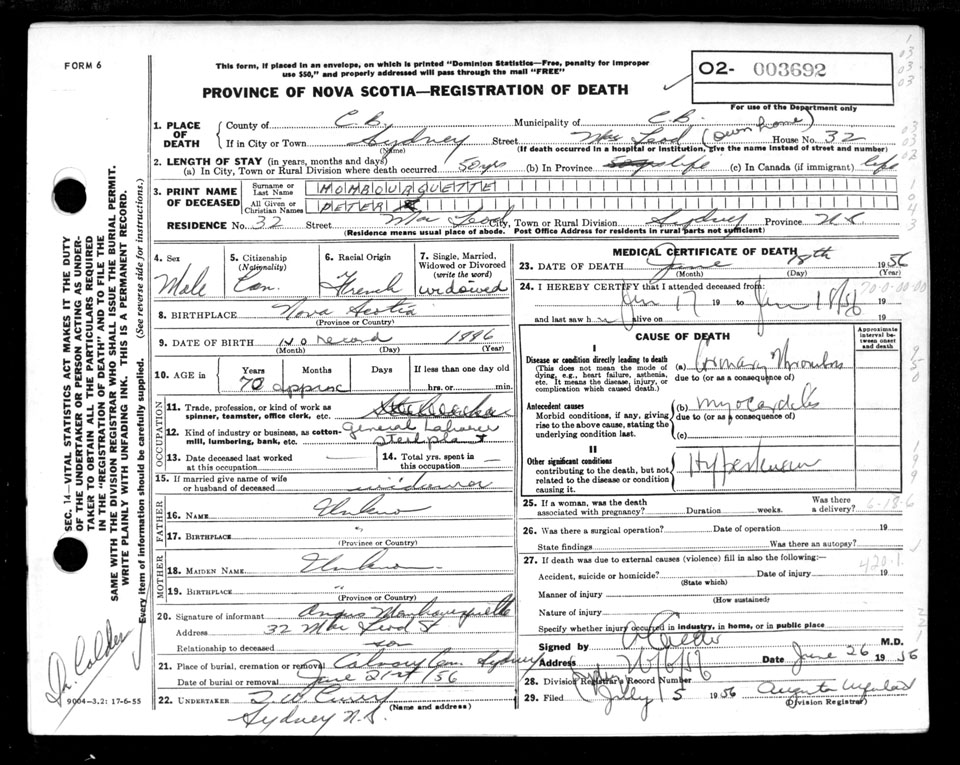 FORM 6
This form, if placed in an envelope, on which is printed "Dominion Statistics—Free, penalty for improper
use $50," and properly addressed will pass through the mail "FREE"
PROVINCE OF NOVA SCOTIA—REGISTRATION OF DEATH
O2- 003692
For use of the Department only
1. PLACE OF DEATH
County of C.B. Municipality of C.B.
If in City or Town Sydney Street Mac Leod (own home) House No. 32
(Name) (If death occurred in a hospital or institution, give the name instead of street and number)
2. LENGTH OF STAY (in years, months and days)
(a) In City, Town or Rural Division where death occurred 50 yrs (b) In Province life (c) In Canada (if immigrant) life
3. PRINT NAME OF DECEASED
Surname or Last Name HOMBOURQUETTE
All Given or Christian Names PETER
RESIDENCE No. 32 Street Mac Leod City, Town or Rural Division Sydney Province N.S
(Residence means usual place of abode. Post Office Address for residents in rural parts not sufficient)
4. Sex Male
5. Citizenship (Nationality) Can.
6. Racial Origin French
7. Single, Married, Widowed or Divorced (write the word) widowed
8. BIRTHPLACE Nova Scotia
(Province or Country)
9. DATE OF BIRTH no record
(Month) (Day) (Year)
10. AGE in Years Months Days If less than one day old
70 approx hrs. or min.
OCCUPATION
11. Trade, profession or kind of work as spinner, teamster, office clerk, etc.
12. Kind of industry or business, as cotton-mill, lumbering, bank, etc. General Laborer Steel plant
13. Date deceased last worked at this occupation —
14. Total yrs. spent in this occupation —
15. If married give name of wife or husband of deceased widower
FATHER
16. NAME Unknown
17. BIRTHPLACE "
(Province or Country)
MOTHER
18. MAIDEN NAME Unknown
19. BIRTHPLACE "
(Province or Country)
20. Signature of informant Angus
Address 32 Mac Leod St
Relationship to deceased son
21. Place of burial, cremation or removal Calvary Cem. Sydney
Date of burial or removal June 21st/56
22. UNDERTAKER T.W. Curry
(Name and address)
Sydney N.S.
MEDICAL CERTIFICATE OF DEATH
23. DATE OF DEATH June 18th 1956
(Month) (Day) (Year)
24. I HEREBY CERTIFY that I attended deceased from:
Jun 17 19 to Jun 18/56 19
and last saw h alive on 19
CAUSE OF DEATH
Approximate interval between onset and death
I
Disease or condition directly leading to death
(This does not mean the mode of dying, e.g., heart failure, asthenia, etc. It means the disease, injury, or complication which caused death.)
(a) Coronary Thrombosis
due to (or as a consequence of)
Antecedent causes
Morbid conditions, if any, giving rise to the above cause, stating the underlying condition last.
(b) Myocarditis
due to (or as a consequence of)
(c)
II
Other significant conditions
contributing to the death, but not related to the disease or condition causing it.
Hypertension
25. If a woman, was the death associated with pregnancy? Duration weeks. Was there a delivery? 6-18-6
26. Was there a surgical operation? Date of operation 19
State findings Was there an autopsy?
27. If death was due to external causes (violence) fill in also the following:—
420.1
Accident, suicide or homicide? Date of injury 19
(State which)
Manner of injury
(How sustained)
Nature of injury
Specify whether injury occurred in industry, in home, or in public place
Signed by M.D.
Address Date June 26 1956
28. Division Registrar's Record Number
29. Filed July 5 1956 Augusta
(Division Registrar)
SEC. 14—VITAL STATISTICS ACT MAKES IT THE DUTY
OF THE UNDERTAKER OR PERSON ACTING AS UNDER-
TAKER TO OBTAIN ALL THE PARTICULARS REQUIRED
IN THE "REGISTRATION OF DEATH" AND TO FILE THE
SAME WITH THE DIVISION REGISTRAR WHO SHALL ISSUE THE BURIAL PERMIT.
WRITE PLAINLY WITH UNFADING INK. THIS IS A PERMANENT RECORD.
Every item of information should be carefully supplied. (See reverse side for instructions.)
Dr. Calder
9004-3.2: 17-6-55